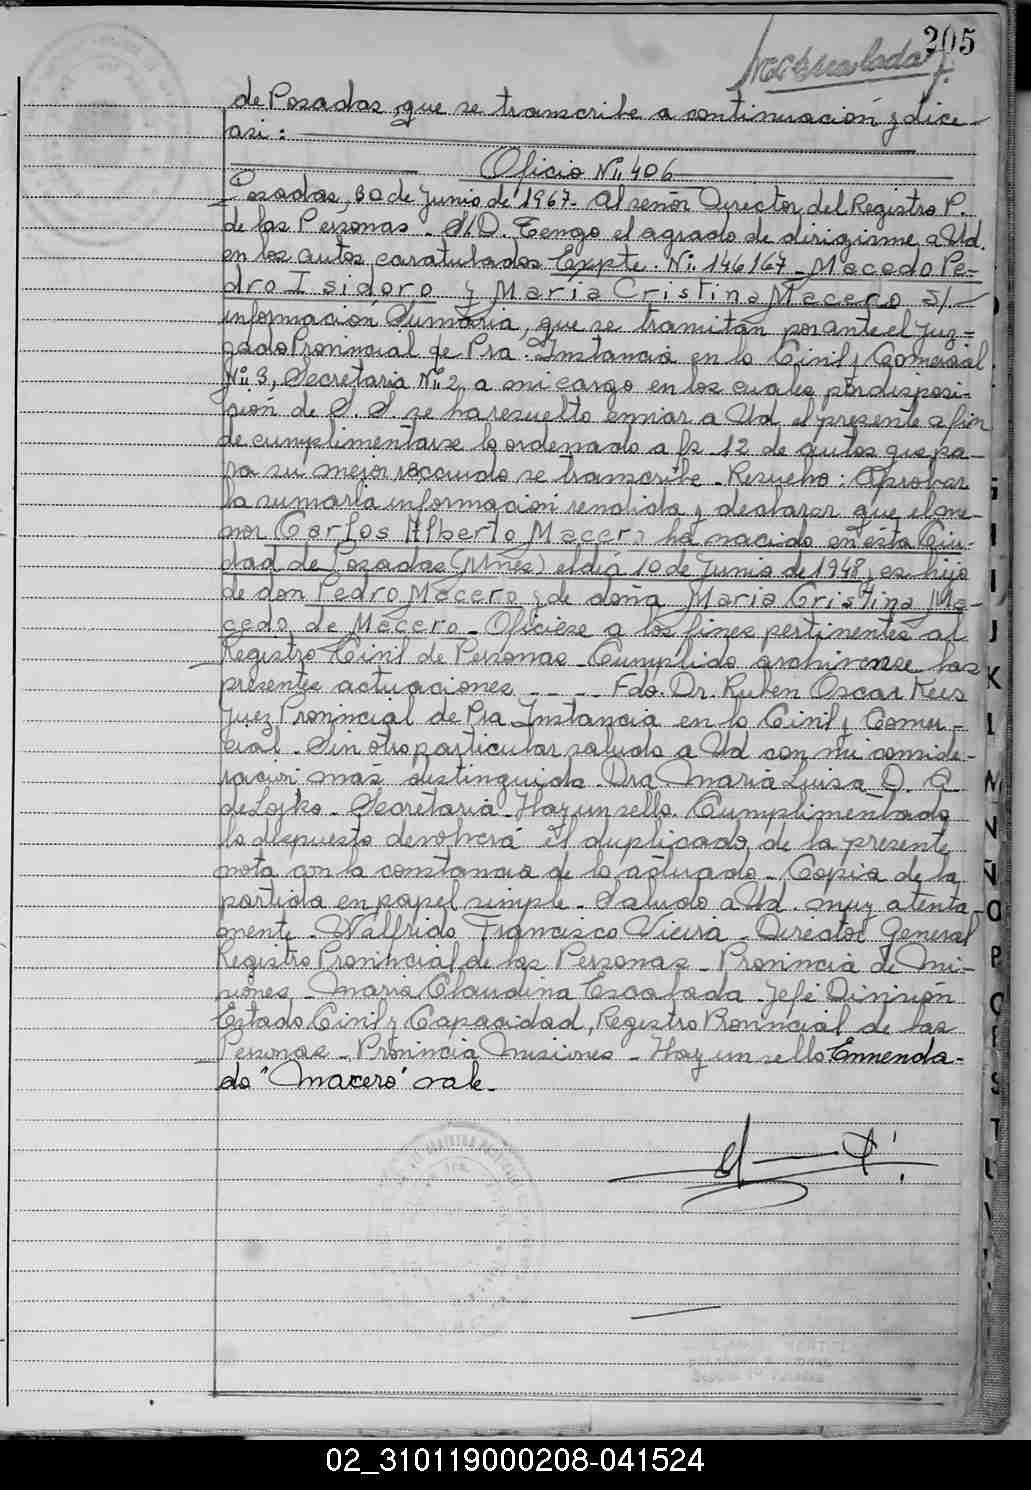 205
de Posadas, que se transcribe a continuación y dice
asi:
Oficio Nº 406
Posadas, 30 de Junio de 1967. Al señor Director del Registro P.
de las Personas. S/D. Tengo el agrado de dirigirme a Ud.
en los autos caratulados Expte. Nº 146167 - Macedo Pe=
dro Isidoro y Maria Cristina Macero S/-
información Sumaria, que se tramitan por ante el Juz=
gado Provincial de Pra. Instancia en lo Civil y Comercial
Nº 3, Secretaria Nº 2, a mi cargo en los cuales por disposi-
ción de S. S. se ha resuelto enviar a Ud el presente a fin
de cumplimentarse lo ordenado a fs. 12 de autos que pa-
ra su mejor recaudo se transcribe - Resuelvo: Aprobar
la sumaria informacion rendida y declarar que el me-
nor Carlos Alberto Macero ha nacido en esta Ciu-
dad de Posadas (Mnes) el dia 10 de Junio de 1948, es hijo
de don Pedro Macero y de doña Maria Cristina Ma-
cedo de Macero - Ofíciese a los fines pertinentes al
Registro Civil de Personas - Cumplido archivense las
presentes actuaciones - - - - Fdo. Dr. Ruben Oscar
Juez Provincial de Pra Instancia en lo Civil y Comer-
cial. Sin otro particular saludo a Ud con mi conside-
racion más distinguida. Dra. Maria Luisa D. A.
de Lojko - Secretaria - Hay un sello. Cumplimentado
lo dispuesto devolverá el duplicado de la presente
nota con la constancia de lo actuado - Copia de la
partida en papel simple - Saludo a Ud. muy atenta
mente - Walfrido Francisco Vieira - Director General
Registro Provincial de las Personas - Provincia de Mi-
siones - Maria Claudina Escalada - Jefe División
Estado Civil y Capacidad, Registro Provincial de las
Personas - Provincia Misiones - Hay un sello Enmenda-
do "Macero" vale-
02_310119000208-041524